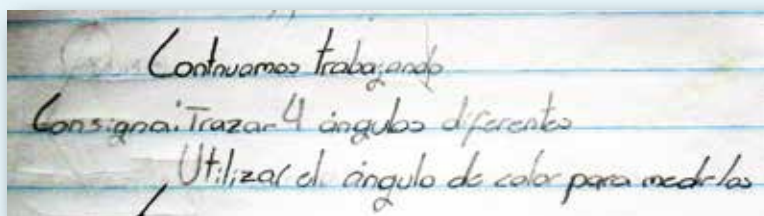 Continuamos trabajando
Consigna: Trazar 4 ángulos diferentes
Utilizar el ángulo de color para medirlos